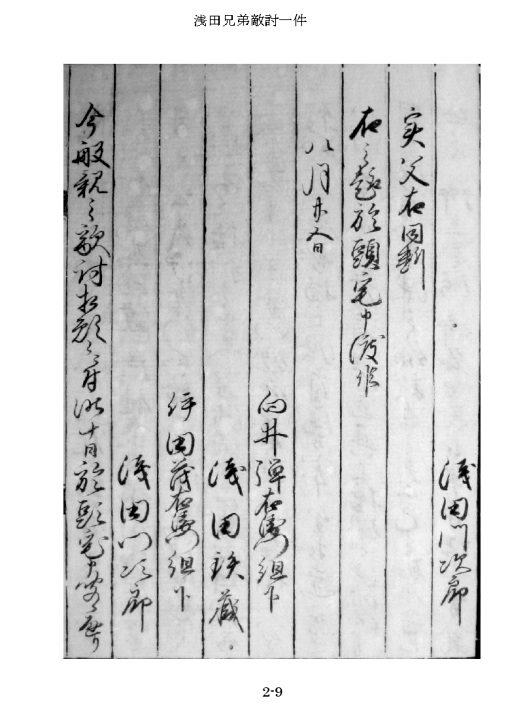 浅田兄弟敵討一件
浅田門次郎
実父右同断
右之趣於頭宅申渡候
八月廿八日
向井弾右衛門組下
浅田鉄蔵
伊園茂右衛門組下
浅田門次郎
今般親之敵討相願候ニ付 十日於頭宅
2-9